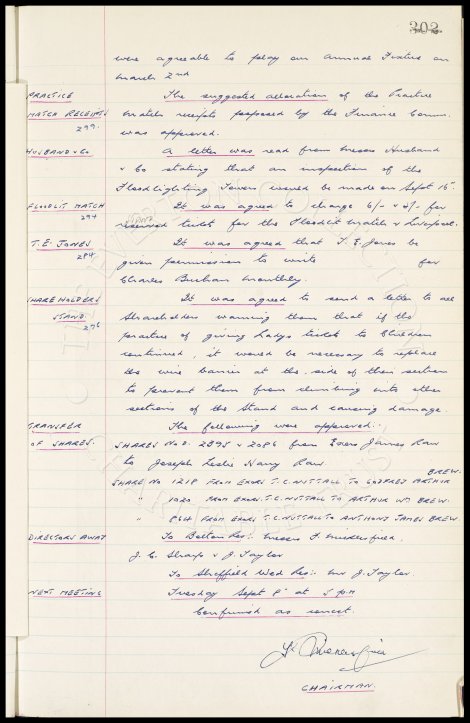 302
were agreeable to play an annual Fixture on
March 2nd
PRACTICE The suggested allocation of the Practice
MATCH RECEIPTS Match receipts proposed by the Finance Comm.
299. was approved.
HUSBAND & Co A letter was read from Messrs Husband
& Co stating that an inspection of the
Floodlighting Towers would be made on Sept 15".
FLOODLIT MATCH It was agreed to charge 6/- & 4/- for
294 STAND
reserved tickets for the Floodlit Match v Liverpool.
T.E. JONES It was agreed that T. E. Jones be
284 given permission to write for
Charles Buchan monthly.
SHAREHOLDERS It was agreed to send a letter to all
STAND. Shareholders warning them that if the
276 practice of giving Ladys tickets to Children
continued, it would be necessary to replace
the wire barrier at the side of their section
to prevent them from climbing into other
sections of the Stand and causing damage.
TRANSFER The following were approved:-
OF SHARES. SHARES NOS. 2895 & 2086 from Exors James Raw
to Joseph Leslie Harry Raw.
BREW.
SHARE NO 1218 FROM EXORS T.C. NUTTALL TO GODFREY ARTHUR
" 1020 FROM EXORS. T.C. NUTTALL TO ARTHUR WM BREW.
" 864 FROM EXORS T.C. NUTTALL TO ANTHONY JAMES BREW.
DIRECTORS AWAY To Bolton Res:- Messrs F. Micklesfield.
J. C. Sharp & J. Taylor
To Sheffield Wed Res:- Mr J. Taylor.
NEXT MEETING Tuesday Sept 8" at 5 pm
Confirmed as correct.
CHAIRMAN.